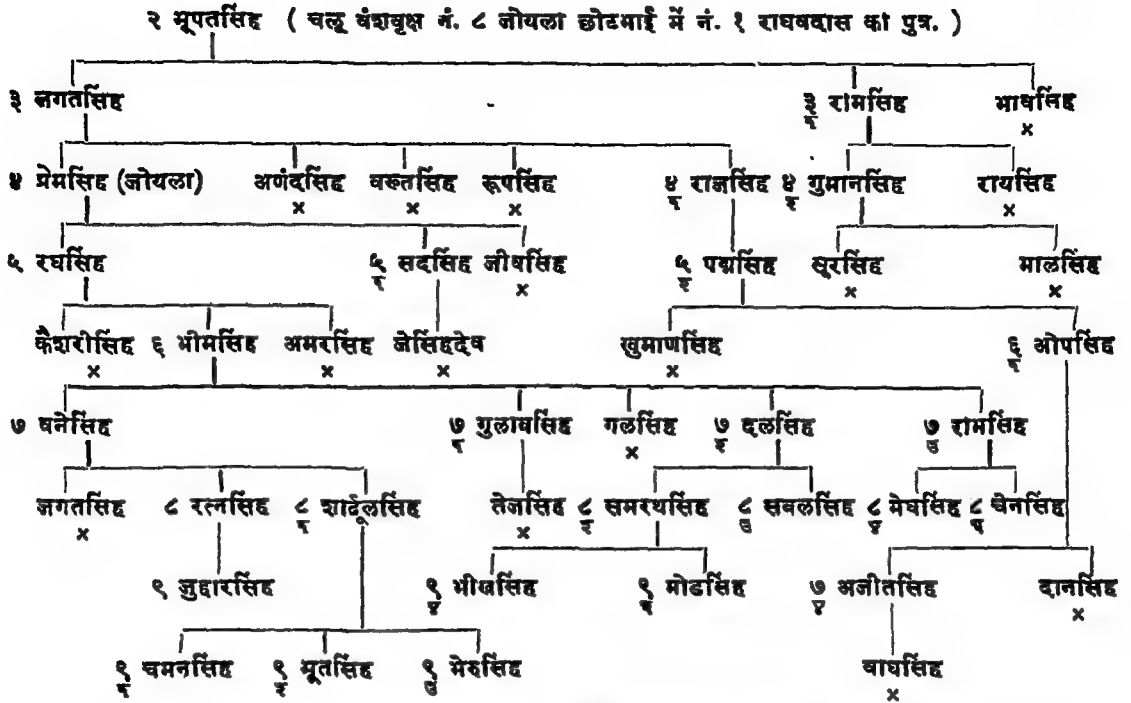 २ भूपतसिंह ( चलू वंशवृक्ष नं. ८ जोयला छोटभाई में नं. १ राघवदास का पुत्र. )
३ जगतसिंह ३/१ रामसिंह भावसिंह
× 
४ प्रेमसिंह (जोयला) अणंदसिंह वख्तसिंह रूपसिंह ४/१ राजसिंह ४/२ गुमानसिंह रायसिंह
× × × ×
५ रघसिंह ५/१ सदसिंह जीवसिंह ५/२ पद्मसिंह सूरसिंह मालसिंह
× × ×
कैशरीसिंह ६ भीमसिंह अमरसिंह जेसिंहदेव खुमाणसिंह ६/१ ओपसिंह
× × × ×
७ वनेसिंह ७/१ गुलाबसिंह गलसिंह ७/२ दलसिंह ७/३ रामसिंह
×
जगतसिंह ८ रत्नसिंह ८/१ शार्दूलसिंह तेजसिंह ८/२ समरथसिंह ८/३ सबलसिंह ८/४ मेघसिंह ८/५ चेनसिंह
× ×
९ जुहारसिंह ९/४ भीखसिंह ९/५ मोडसिंह ७/४ अजीतसिंह दानसिंह
×
९/१ चमनसिंह ९/२ भूतसिंह ९/३ मेरुसिंह वाघसिंह
×